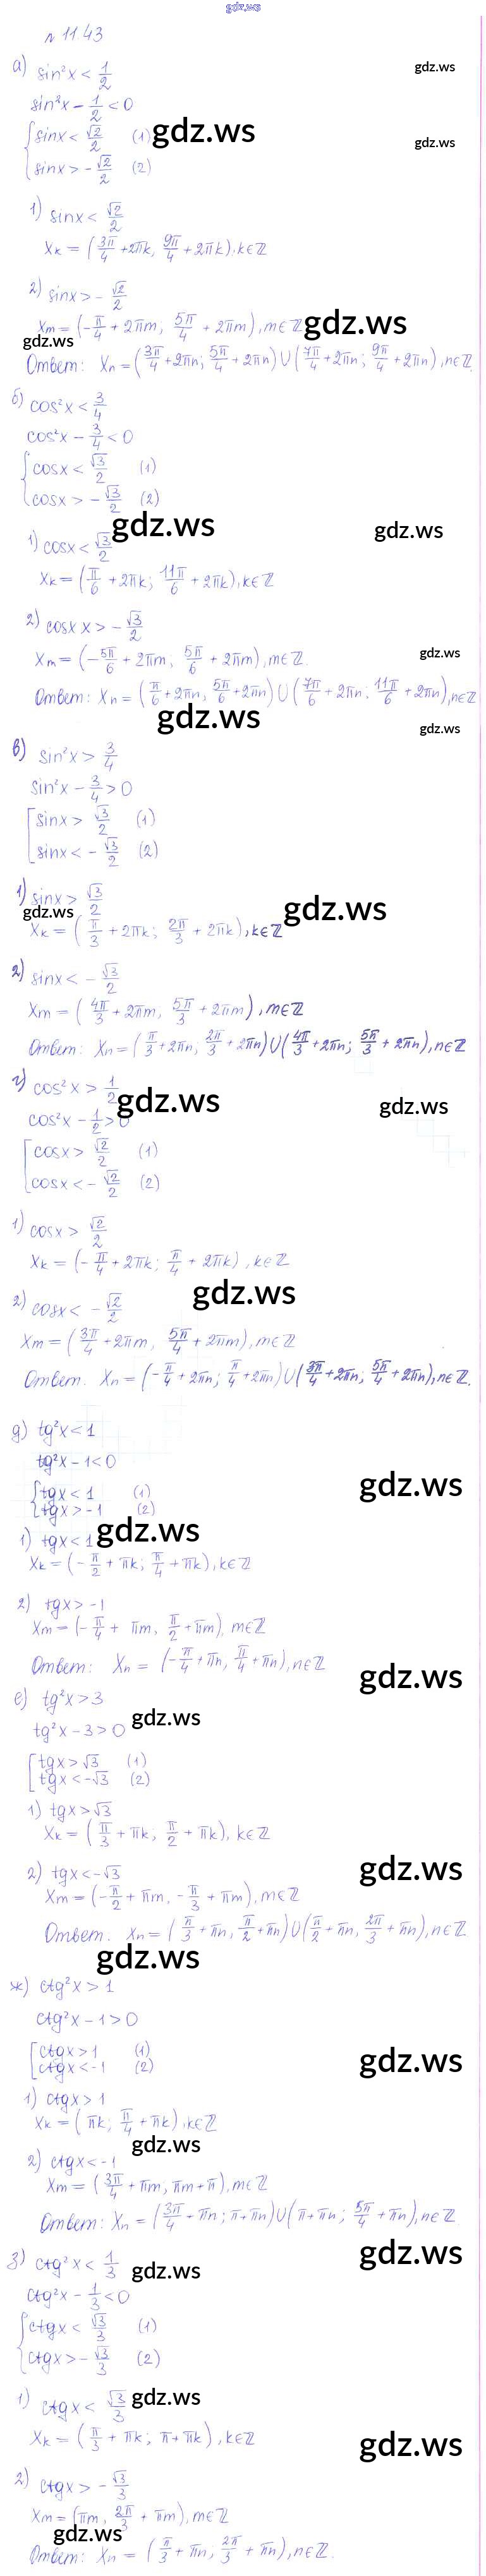 gdz.ws
№ 11.43
а) sin²x < 1/2
gdz.ws
sin²x - 1/2 < 0
{ sinx < √2/2 (1) gdz.ws
gdz.ws
sinx > -√2/2 (2)
1) sinx < √2/2
Xk = (3π/4 + 2πk, 9π/4 + 2πk), k∈Z
2) sinx > -√2/2
Xm = (-π/4 + 2πm, 5π/4 + 2πm), m∈Z gdz.ws
gdz.ws
Ответ: Xn = (3π/4 + 2πn; 5π/4 + 2πn) ∪ (7π/4 + 2πn; 9π/4 + 2πn), n∈Z.
б) cos²x < 3/4
cos²x - 3/4 < 0
{ cosx < √3/2 (1)
cosx > -√3/2 (2)
gdz.ws gdz.ws
1) cosx < √3/2
Xk = (π/6 + 2πk; 11π/6 + 2πk), k∈Z
2) cosx x > -√3/2
Xm = (-5π/6 + 2πm; 5π/6 + 2πm), m∈Z. gdz.ws
Ответ: Xn = (π/6 + 2πn, 5π/6 + 2πn) ∪ (7π/6 + 2πn; 11π/6 + 2πn), n∈Z
gdz.ws gdz.ws
в) sin²x > 3/4
sin²x - 3/4 > 0
[ sinx > √3/2 (1)
sinx < -√3/2 (2)
1) sinx > √3/2
gdz.ws gdz.ws
Xk = (π/3 + 2πk; 2π/3 + 2πk), k∈Z
2) sinx < -√3/2
Xm = (4π/3 + 2πm, 5π/3 + 2πm), m∈Z
Ответ: Xn = (π/3 + 2πn, 2π/3 + 2πn) ∪ (4π/3 + 2πn; 5π/3 + 2πn), n∈Z
г) cos²x > 1/2 gdz.ws gdz.ws
cos²x - 1/2 > 0
[ cosx > √2/2 (1)
cosx < -√2/2 (2)
1) cosx > √2/2
Xk = (-π/4 + 2πk; π/4 + 2πk), k∈Z
gdz.ws
2) cosx < -√2/2
Xm = (3π/4 + 2πm, 5π/4 + 2πm), m∈Z
Ответ. Xn = (-π/4 + 2πn; π/4 + 2πn) ∪ (3π/4 + 2πn; 5π/4 + 2πn), n∈Z.
д) tg²x < 1
tg²x - 1 < 0
gdz.ws
{ tgx < 1 (1)
tgx > -1 (2)
1) tgx < 1 gdz.ws
Xk = (-π/2 + πk; π/4 + πk), k∈Z
2) tgx > -1
Xm = (-π/4 + πm, π/2 + πm), m∈Z
Ответ: Xn = (-π/4 + πn, π/4 + πn), n∈Z
gdz.ws
е) tg²x > 3
gdz.ws
tg²x - 3 > 0
[ tgx > √3 (1)
tgx < -√3 (2)
1) tgx > √3
Xk = (π/3 + πk; π/2 + πk), k∈Z
2) tgx < -√3
gdz.ws
Xm = (-π/2 + πm, -π/3 + πm), m∈Z
Ответ. Xn = (π/3 + πn, π/2 + πn) ∪ (π/2 + πn, 2π/3 + πn), n∈Z.
gdz.ws
ж) ctg²x > 1
ctg²x - 1 > 0
[ ctgx > 1 (1)
ctgx < -1 (2)
gdz.ws
1) ctgx > 1
Xk = (πk; π/4 + πk), k∈Z
gdz.ws
2) ctgx < -1
Xm = (3π/4 + πm, πm + π), m∈Z
Ответ: Xn = (3π/4 + πn; π + πn) ∪ (π + πn; 5π/4 + πn), n∈Z
gdz.ws
з) ctg²x < 1/3 gdz.ws
ctg²x - 1/3 < 0
{ ctgx < √3/3 (1)
ctgx > -√3/3 (2)
1) ctgx < √3/3 gdz.ws
Xk = (π/3 + πk; π + πk), k∈Z
gdz.ws
2) ctgx > -√3/3
Xm = (πm, 2π/3 + πm), m∈Z
gdz.ws
Ответ: Xn = (π/3 + πn; 2π/3 + πn), n∈Z.